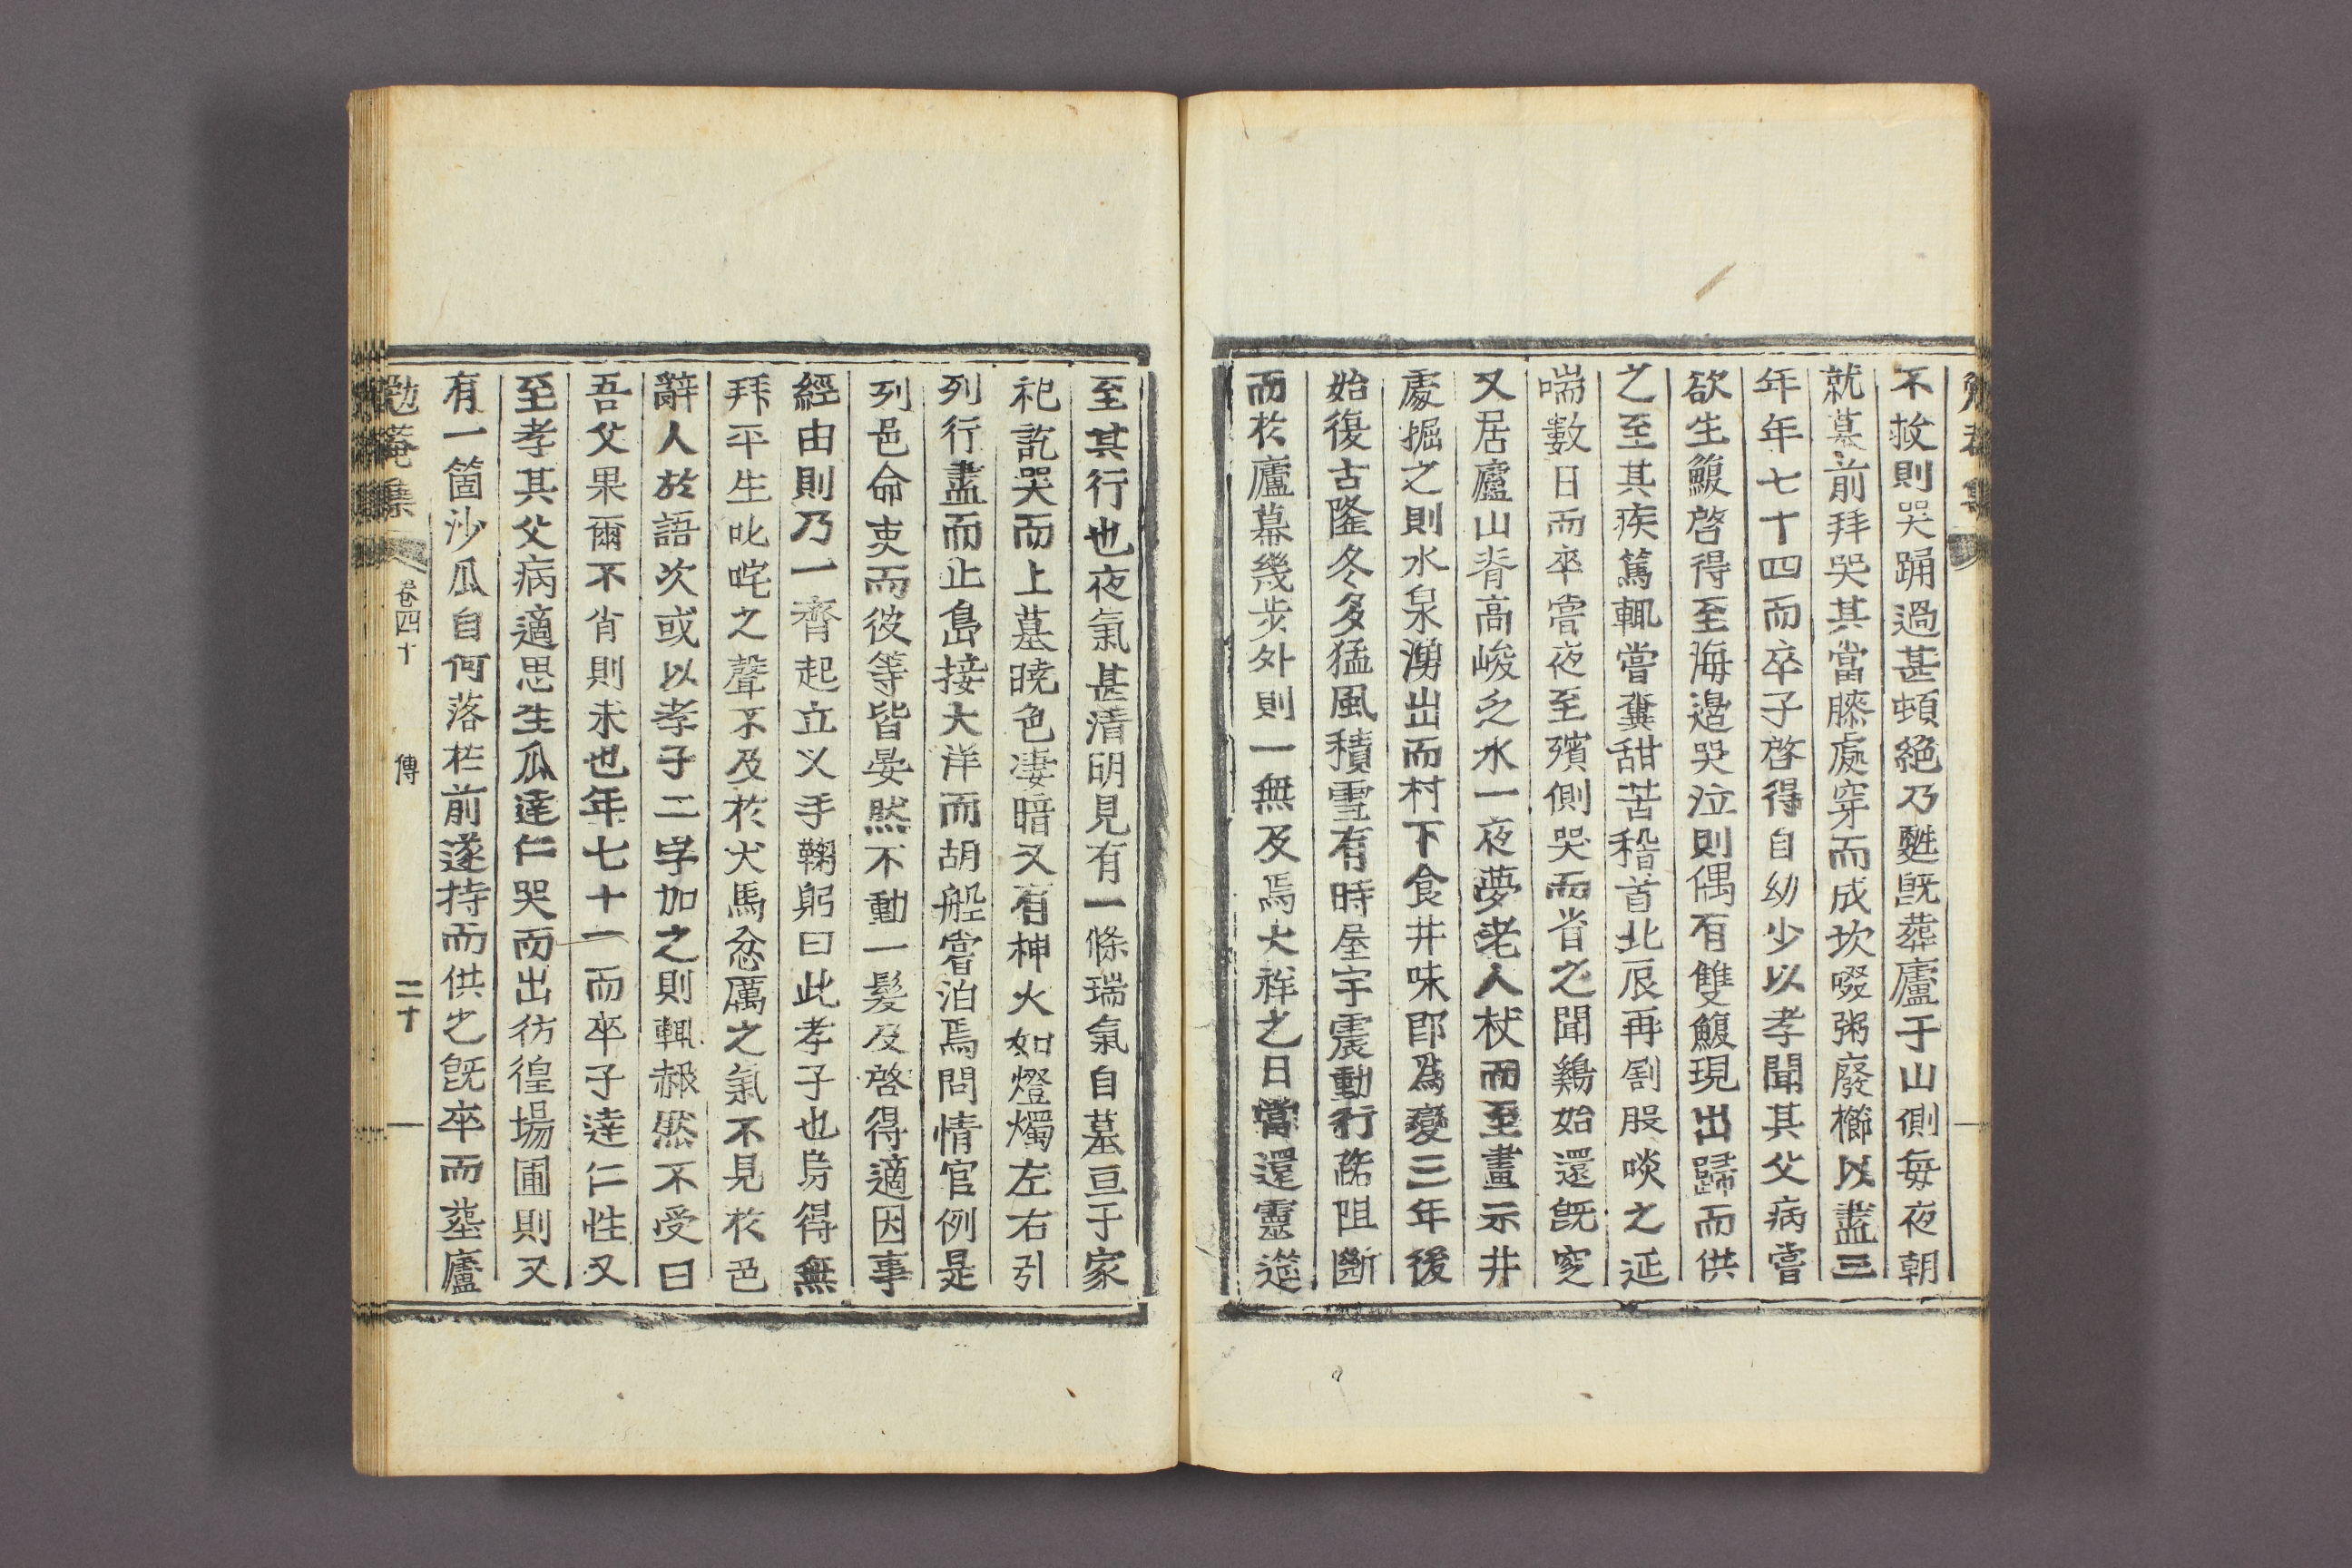 不救則哭踊過甚頓絶乃甦旣葬廬于山側每夜朝
就墓前拜哭其當膝處穿而成坎啜粥廢櫛以盡三
年年七十四而卒子啓得自幼少以孝聞其父病嘗
欲生鰒啓得至海邊哭泣則偶有雙鰒現出歸而供
之至其疾篤輒嘗糞甜苦稽首北辰再割股啖之延
喘數日而卒嘗夜至殯側哭而省之聞鷄始還旣窆
又居廬山脊高峻乏水一夜夢老人杖而至畫示井
處掘之則水泉湧出而村下食井味卽爲變三年後
始復古隆冬多猛風積雪有時屋宇震動行路阻斷
而於廬幕幾步外則一無及焉大祥之日當還靈筵
至其行也夜氣甚淸明見有一條瑞氣自墓亘于家
祀訖哭而上墓曉色凄暗又有神火如燈燭左右引
列行盡而止島接大洋而胡船嘗泊焉問情官例是
列邑命吏而彼等皆晏然不動一髮及啓得適因事
經由則乃一齊起立乂手鞠躬曰此孝子也烏得無
拜平生叱咤之聲不及於犬馬忿厲之氣不見於邑
辭人於語次或以孝子二字加之則輒赧然不受曰
吾父果爾不肖則未也年七十一而卒子達仁性又
至孝其父病適思生瓜達仁哭而出彷徨場圃則又
有一箇沙瓜自何落在前遂持而供之旣卒而葬廬
勉菴集 卷四十 傳 二十